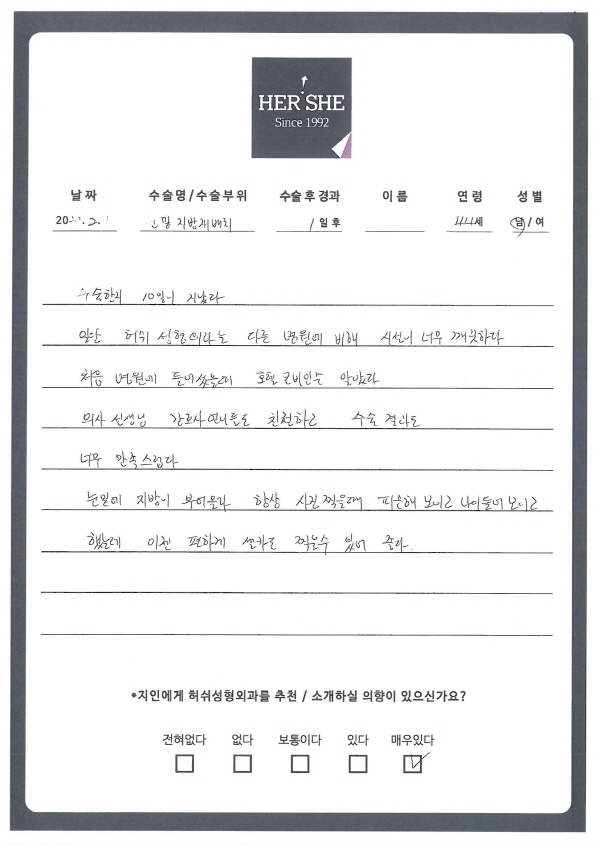 HER SHE
Since 1992
날짜 수술명/수술부위 수술후경과 이름 연령 성별
20 .2. 밑 지방재배치 1 일 후 44세 남/여
수술한지 10일이 지났다
일단 허쉬 성형외과는 다른 병원에 비해 시설이 너무 깨끗하다
처음 병원에 들어섰을때 호텔 로비인줄 알았다.
의사 선생님 간호사언니들도 친절하고 수술 결과도
너무 만족스럽다
눈밑에 지방이 부어올라 항상 사진 찍을때 피곤해 보이고 나이들어 보이고
했는데 이젠 편하게 셀카도 찍을수 있어 좋다.
*지인에게 허쉬성형외과를 추천 / 소개하실 의향이 있으신가요?
전혀없다 없다 보통이다 있다 매우있다